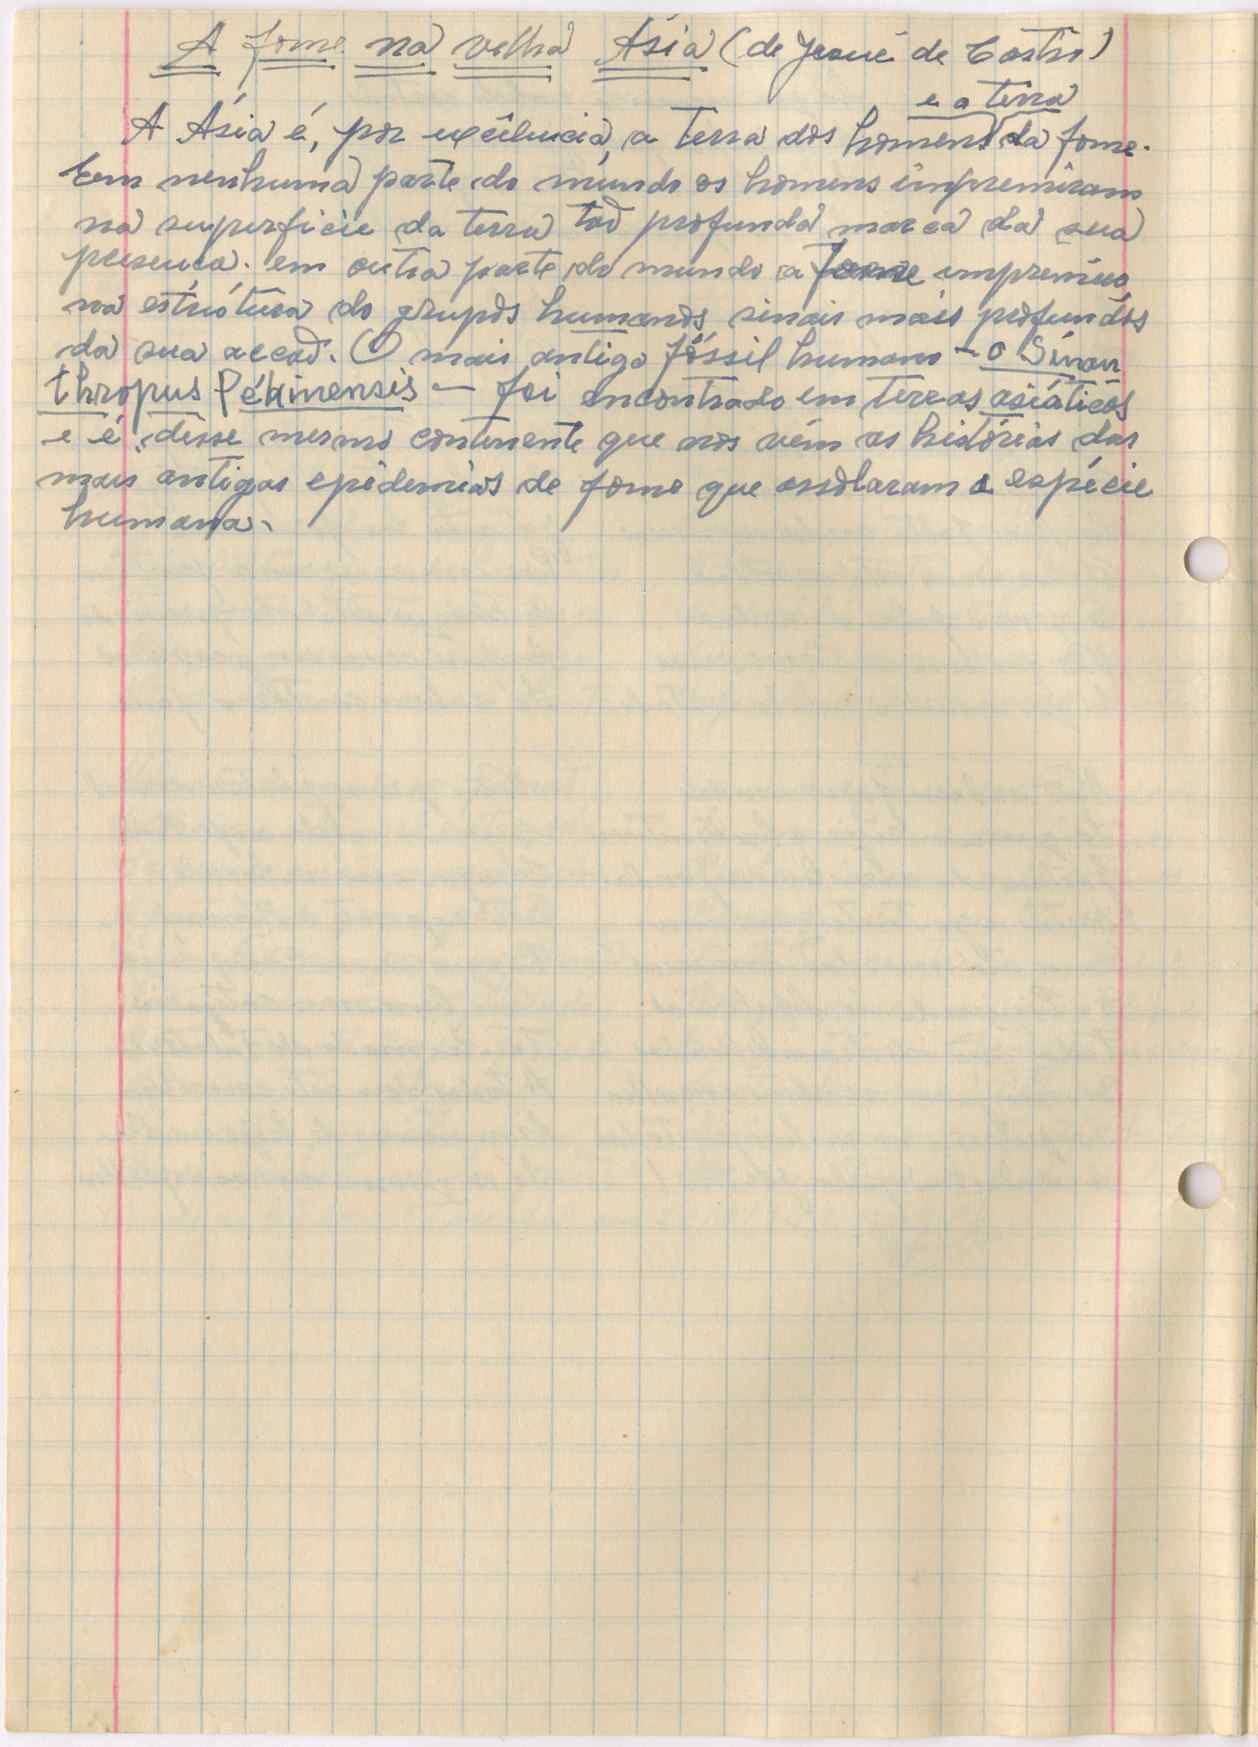 A fome na velha Ásia (de Josué de Castro)
e a terra
A Ásia é, por excelência, a terra dos homens da fome.
Em nenhuma parte do mundo os homens imprimiram
na superficie da terra tão profunda marca da sua
presença. em outra parte do mundo a fome imprimiu
na estrutura do grupos humanos sinais mais profundos
da sua accão. O mais antigo fóssil humano — o Sinan
thropus Pékinensis — foi encontrado em terras asiáticas
e é desse mesmo continente que nos vêm as histórias das
mais antigas epidemias de fome que assolaram a espécie
humana.